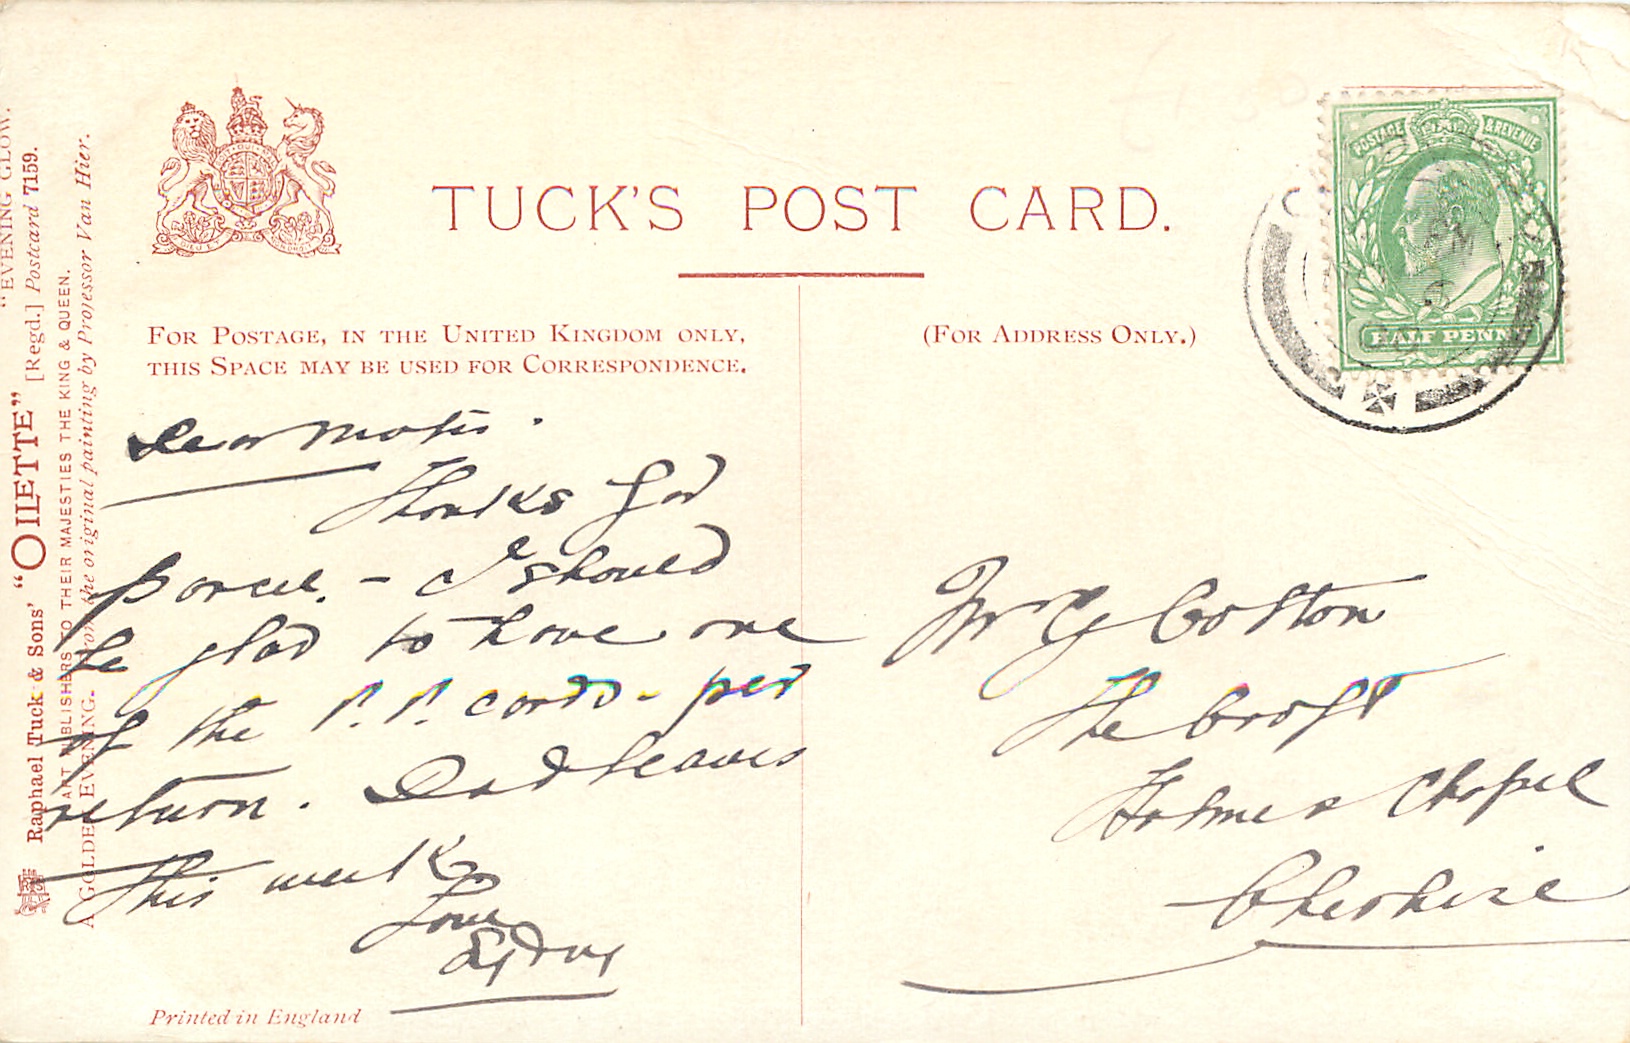 TUCK'S POST CARD.
FOR POSTAGE, IN THE UNITED KINGDOM ONLY,
THIS SPACE MAY BE USED FOR CORRESPONDENCE.
(FOR ADDRESS ONLY.)
POSTAGE & REVENUE
HALF PENNY
"EVENING GLOW.
Raphael Tuck & Sons' "OILETTE" [Regd.] Postcard 7159.
ART PUBLISHERS TO THEIR MAJESTIES THE KING & QUEEN.
A GOLDEN EVENING. From the original painting by Professor Van Hier.
Dear Mother.
Thanks for
parcel. - I should
be glad to have one
of the P.P. cards - per
return. Dad leaves
this week
Love
Mr G Cotton
The Croft
Holmes Chapel
Cheshire
Printed in England